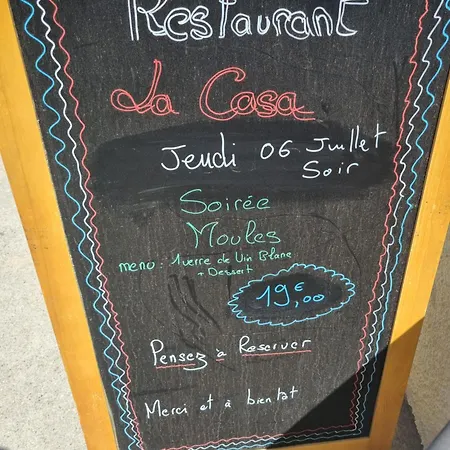 Restaurant
La Casa
Jeudi 06 Juillet
Soir
Soirée
Moules
menu : 1 verre de Vin Blanc
+ Dessert
19€,00
Pensez à Reserver
Merci et à bientot